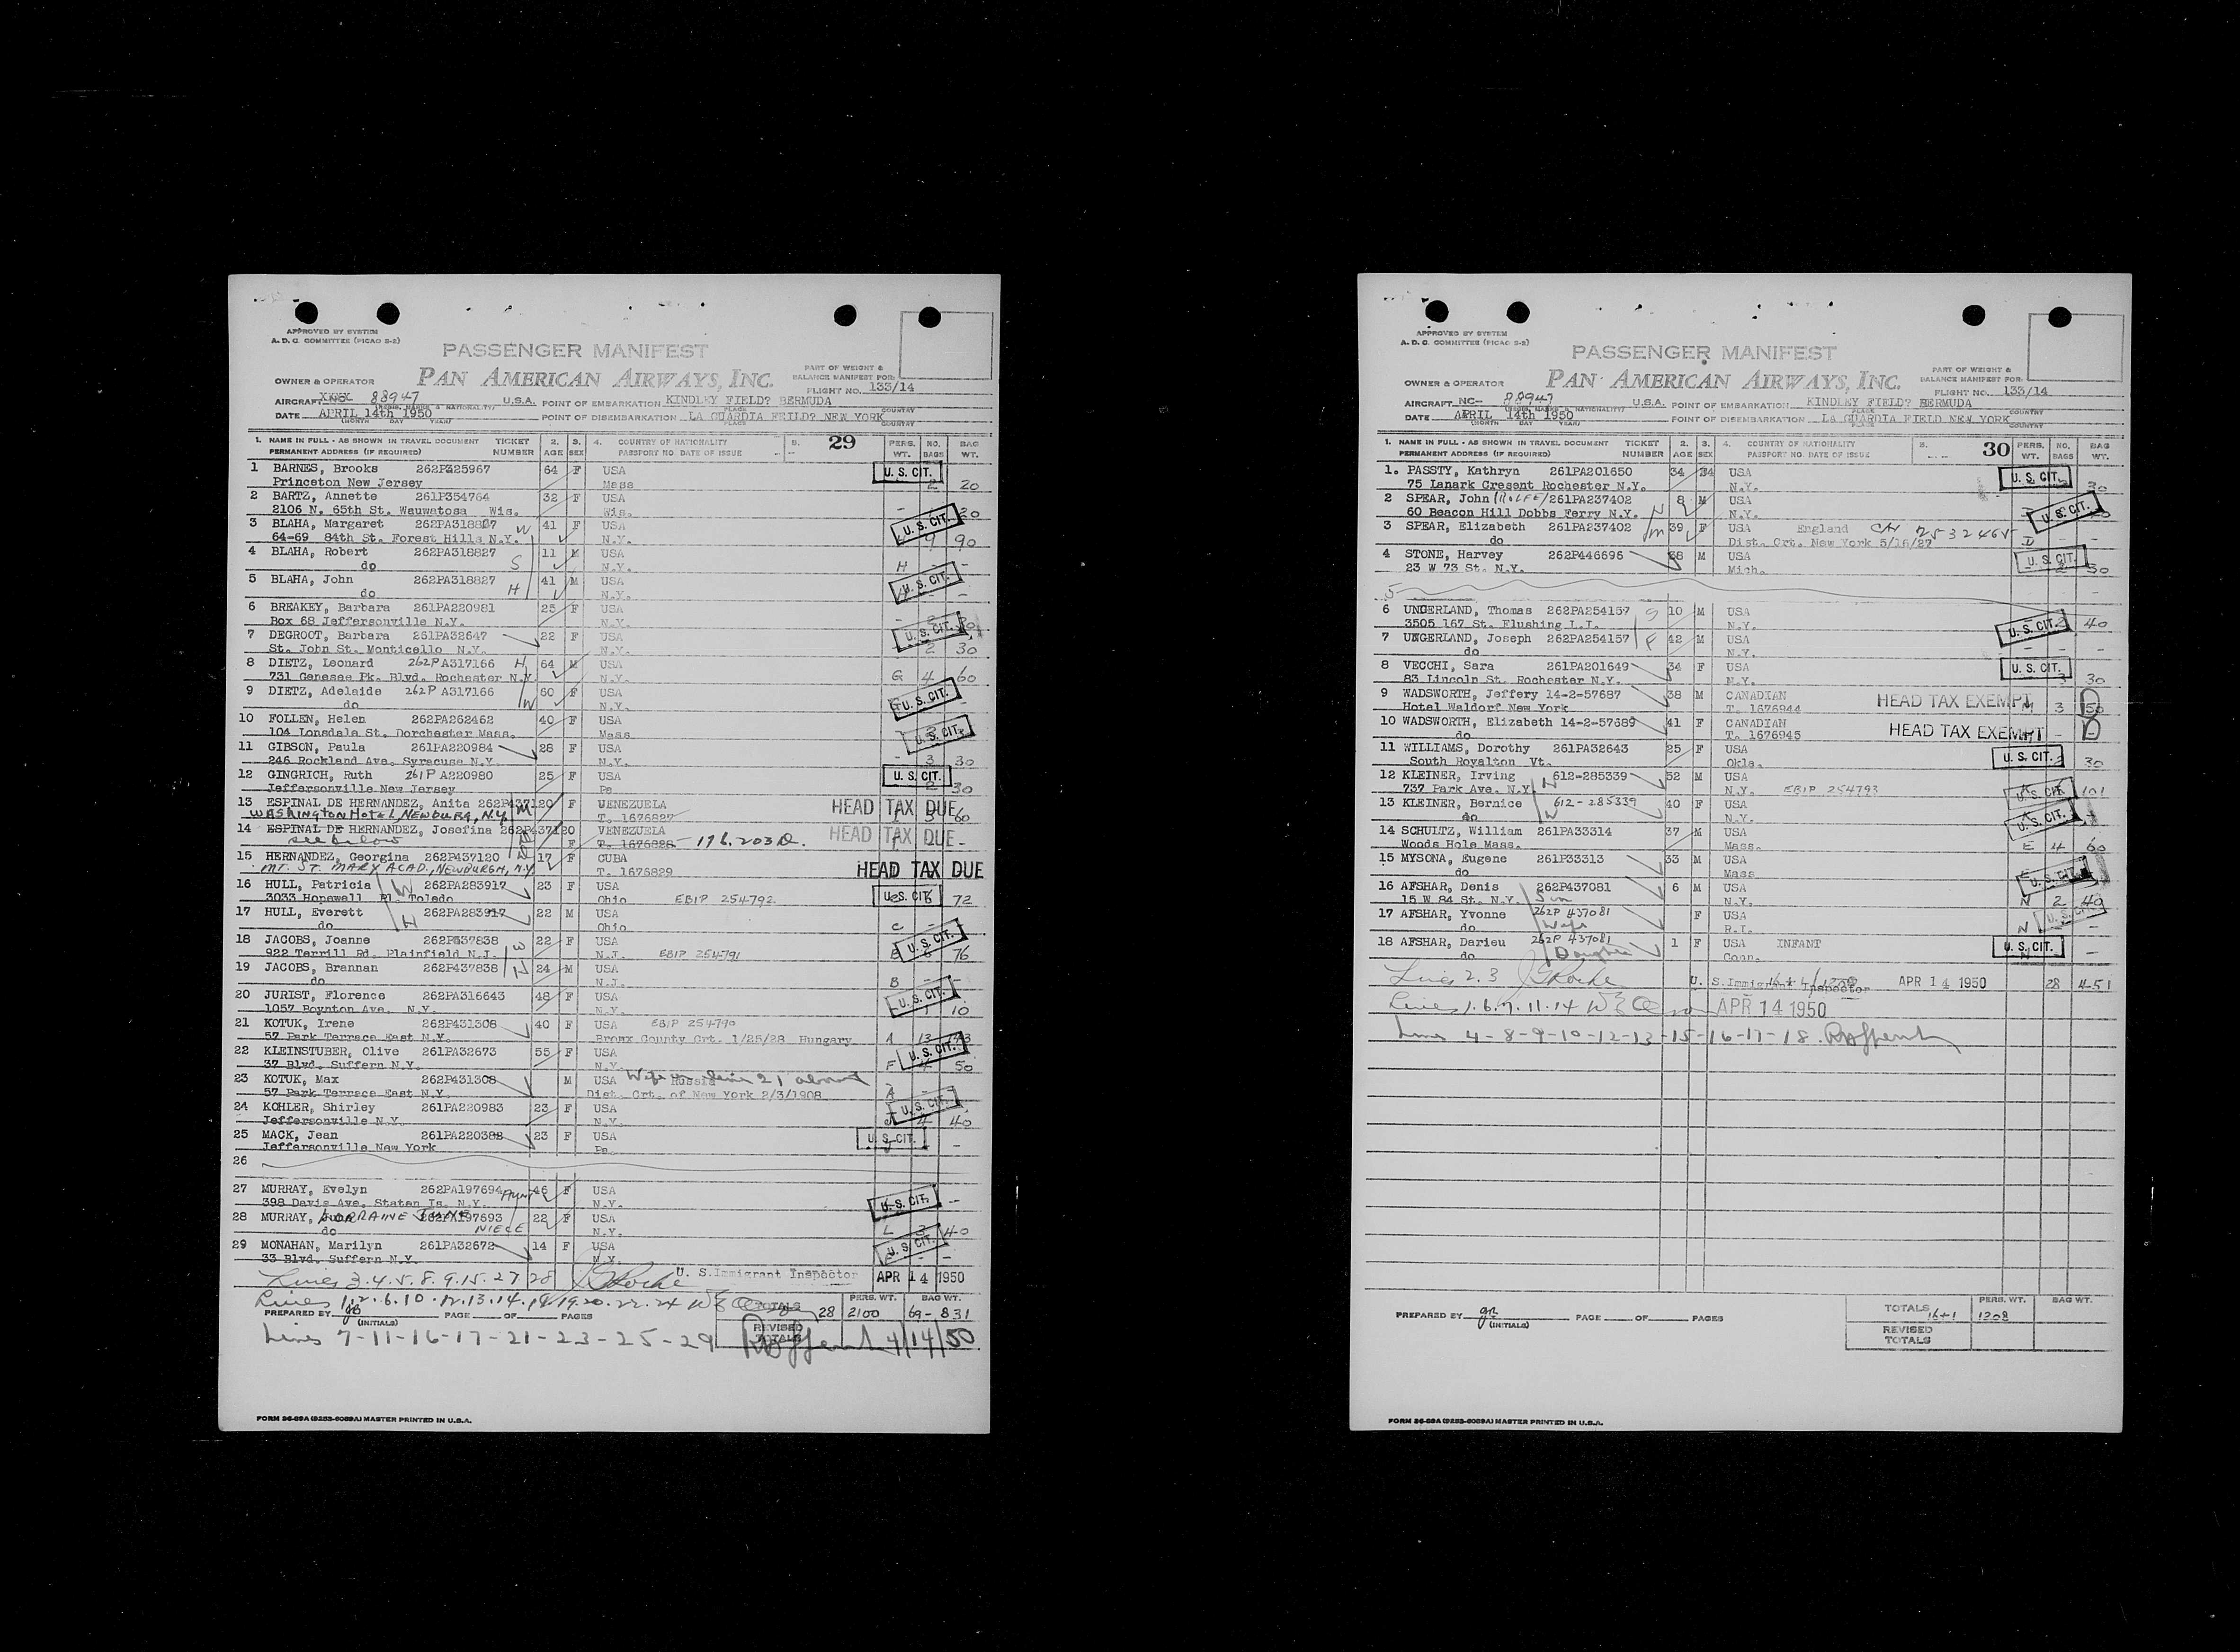 APPROVED BY SYSTEM
A. D. C. COMMITTEE (PICAO S-2)
PASSENGER MANIFEST
PART OF WEIGHT &
BALANCE MANIFEST FOR:
OWNER & OPERATOR PAN AMERICAN AIRWAYS, INC.
FLIGHT NO. 133/14
AIRCRAFT 88947 U.S.A. POINT OF EMBARKATION KINDLEY FIELD? BERMUDA
(REGIS. MARKS & NATIONALITY) PLACE COUNTRY
DATE APRIL 14th 1950 POINT OF DISEMBARKATION LA GUARDIA FEILD? NEW YORK
(MONTH DAY YEAR) PLACE COUNTRY
1. NAME IN FULL - AS SHOWN IN TRAVEL DOCUMENT TICKET 2. 3. 4. COUNTRY OF NATIONALITY 5. 29 PERS. NO. BAG
PERMANENT ADDRESS (IF REQUIRED) NUMBER AGE SEX PASSPORT NO. DATE OF ISSUE WT. BAGS WT.
1 BARNES, Brooks 262P325967 64 F USA U. S. CIT.
Princeton New Jersey Mass 2 20
2 BARTZ, Annette 261P354764 32 F USA
2106 N. 65th St. Wauwatosa Wis. Wis. 30
3 BLAHA, Margaret 262PA318827 W 41 F USA U. S. CIT.
64-69 84th St. Forest Hills N.Y. N.Y. 4 90
4 BLAHA, Robert 262PA318827 11 M USA
do S N.Y. H -
5 BLAHA, John 262PA318827 41 M USA U. S. CIT.
do H N.Y.
6 BREAKEY, Barbara 261PA220981 25 F USA
Box 68 Jeffersonville N.Y. N.Y.
7 DEGROOT, Barbara 261PA32647 22 F USA U. S. CIT.
St. John St. Monticello N.Y. N.Y. 2 30
8 DIETZ, Leonard 262PA317166 H 64 M USA
731 Genesee Pk. Blvd. Rochester N.Y. N.Y. G 4 60
9 DIETZ, Adelaide 262PA317166 60 F USA U. S. CIT.
do W N.Y.
10 FOLLEN, Helen 262PA262462 40 F USA
104 Lonsdale St. Dorchester Mass. Mass U. S. CIT.
11 GIBSON, Paula 261PA220984 28 F USA
246 Rockland Ave. Syracuse N.Y. N.Y. 3 30
12 GINGRICH, Ruth 261PA220980 25 F USA U. S. CIT.
Jeffersonville New Jersey Pa 30
13 ESPINAL DE HERNANDEZ, Anita 262P437120 F VENEZUELA HEAD TAX DUE
WASHINGTON HOTEL, NEWBURG, N.Y. M T. 1676827 60
14 ESPINAL DE HERNANDEZ, Josefina 262P437120 VENEZUELA HEAD TAX DUE
see below F T. 1676828
15 HERNANDEZ, Georgina 262P437120 17 F CUBA HEAD TAX DUE
MT. ST. MARY ACAD., NEWBURGH, N.Y. T. 1676829
16 HULL, Patricia W 262PA283917 23 F USA U. S. CIT.
3033 Hopewell Pl. Toledo Ohio EBIP 254792 72
17 HULL, Everett 262PA283917 22 M USA
do H Ohio C -
18 JACOBS, Joanne 262P437838 W 22 F USA U. S. CIT.
922 Terrill Rd. Plainfield N.J. N.J. EBIP 254791 B 76
19 JACOBS, Brennan 262P437838 H 24 M USA
do N.J. B
20 JURIST, Florence 262PA316643 48 F USA U. S. CIT.
1057 Boynton Ave. N.Y. N.Y. 1 10
21 KOTUK, Irene 262P431308 40 F USA EBIP 254790
57 Park Terrace East N.Y. Bronx County Crt. 1/25/28 Hungary A 13
22 KLEINSTUBER, Olive 261PA32673 55 F USA U. S. CIT.
37 Blvd. Suffern N.Y. N.Y. F 50
23 KOTUK, Max 262P431308 M USA Russia Wife on line 21 above
57 Park Terrace East N.Y. Dist. Crt. of New York 2/3/1908 A
24 KOHLER, Shirley 261PA220983 23 F USA U. S. CIT.
Jeffersonville N.Y. N.Y. 4 40
25 MACK, Jean 261PA220388 23 F USA U. S. CIT.
Jeffersonville New York Pa. -
26
27 MURRAY, Evelyn 262PA197694 Aunt 46 F USA U. S. CIT.
398 Davis Ave. Staten Is. N.Y. N.Y. -
28 MURRAY, LORRAINE JUNE 262PA197693 22 F USA
do NIECE N.Y. L 3 40
29 MONAHAN, Marilyn 261PA32672 14 F USA U. S. CIT.
33 Blvd. Suffern N.Y. N.Y. -
Lines 3.4.5.8.9.15.27.28 U. S. Immigrant Inspector APR 14 1950
Lines 1.2.6.10.12.13.14.18.19.20.22.24 TOTALS 28 PERS. WT. 2100 BAG WT. 69-831
PREPARED BY (INITIALS) PAGE OF PAGES
REVISED TOTALS
Lines 7-11-16-17-21-23-25-29 4/14/50
FORM 26-89A (9253-6089A) MASTER PRINTED IN U.S.A.
APPROVED BY SYSTEM
A. D. C. COMMITTEE (PICAO S-2)
PASSENGER MANIFEST
PART OF WEIGHT &
BALANCE MANIFEST FOR:
OWNER & OPERATOR PAN AMERICAN AIRWAYS, INC.
FLIGHT NO. 133/14
AIRCRAFT NC- 88947 U.S.A. POINT OF EMBARKATION KINDLEY FIELD? BERMUDA
(REGIS. MARKS & NATIONALITY) PLACE COUNTRY
DATE APRIL 14th 1950 POINT OF DISEMBARKATION LA GUARDIA FIELD NEW YORK
(MONTH DAY YEAR) PLACE COUNTRY
1. NAME IN FULL - AS SHOWN IN TRAVEL DOCUMENT TICKET 2. 3. 4. COUNTRY OF NATIONALITY 5. 30 PERS. NO. BAG
PERMANENT ADDRESS (IF REQUIRED) NUMBER AGE SEX PASSPORT NO. DATE OF ISSUE WT. BAGS WT.
1. PASSTY, Kathryn 261PA201650 34 USA U. S. CIT.
75 Lanark Cresent Rochester N.Y. N.Y. 30
2 SPEAR, John (ROLFE) 261PA237402 8 M USA U. S. CIT.
60 Beacon Hill Dobbs Ferry N.Y. N.Y.
3 SPEAR, Elizabeth 261PA237402 39 F USA England CN 2532465
do m Dist. Crt. New York 5/16/27 D - -
4 STONE, Harvey 262P446696 38 M USA U. S. CIT.
23 W 73 St. N.Y. Mich. 30
5
6 UNGERLAND, Thomas 262PA254157 S 10 M USA U. S. CIT.
3505 167 St. Flushing L.I. N.Y. 40
7 UNGERLAND, Joseph 262PA254157 F 42 M USA
do N.Y. - - -
8 VECCHI, Sara 261PA201649 34 F USA U. S. CIT.
83 Lincoln St. Rochester N.Y. N.Y. 3 30
9 WADSWORTH, Jeffery 14-2-57687 38 M CANADIAN HEAD TAX EXEMPT
Hotel Waldorf New York T. 1676944 M 3 50
10 WADSWORTH, Elizabeth 14-2-57689 41 F CANADIAN HEAD TAX EXEMPT
do T. 1676945 -
11 WILLIAMS, Dorothy 261PA32643 25 F USA U. S. CIT.
South Royalton Vt. Okla. 30
12 KLEINER, Irving 612-285339 52 M USA
737 Park Ave. N.Y. H N.Y. EBIP 254793 U. S. CIT. 101
13 KLEINER, Bernice 612-285339 40 F USA
do N.Y. U. S. CIT.
14 SCHULTZ, William 261PA33314 37 M USA
Woods Hole Mass. Mass. E 4 60
15 MYSONA, Eugene 261P33313 33 M USA
do Mass U. S. CIT.
16 AFSHAR, Denis 262P437081 6 M USA
15 W 84 St. N.Y. Son N.Y. N 2 40
17 AFSHAR, Yvonne 262P 437081 F USA U. S. CIT.
do Wife R.I. N -
18 AFSHAR, Darieu 262P 437081 1 F USA INFANT U. S. CIT.
do Daughter Conn. N -
Lines 2.3 U. S. Immigrant Inspector APR 14 1950 28 451
Lines 1.6.7.11.14 APR 14 1950
Lines 4-8-9-10-12-13-15-16-17-18
PREPARED BY (INITIALS) PAGE OF PAGES
TOTALS 16+1 PERS. WT. 1208 BAG WT.
REVISED TOTALS
FORM 26-89A (9253-6089A) MASTER PRINTED IN U.S.A.